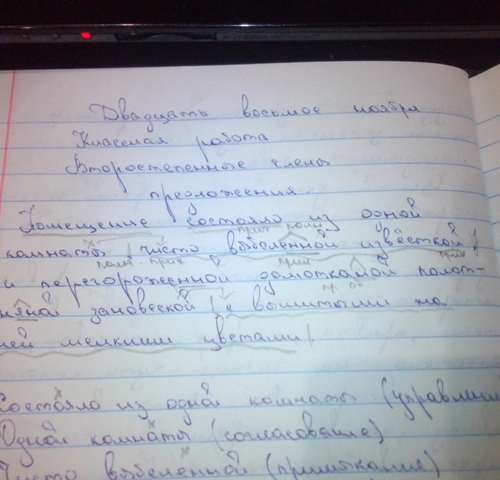 Двадцать восьмое ноября
Классная работа
Второстепенные члены
предложения
Помещение состояло из одной
комнаты, чисто выбеленной извёсткой,
и перегороженной домотканой полот-
няной занавеской с вышитыми на
ней мелкими цветами.
Состояло из одной комнаты (управлени
Одной комнаты (согласование)
Чисто выбеленной (примыкание)